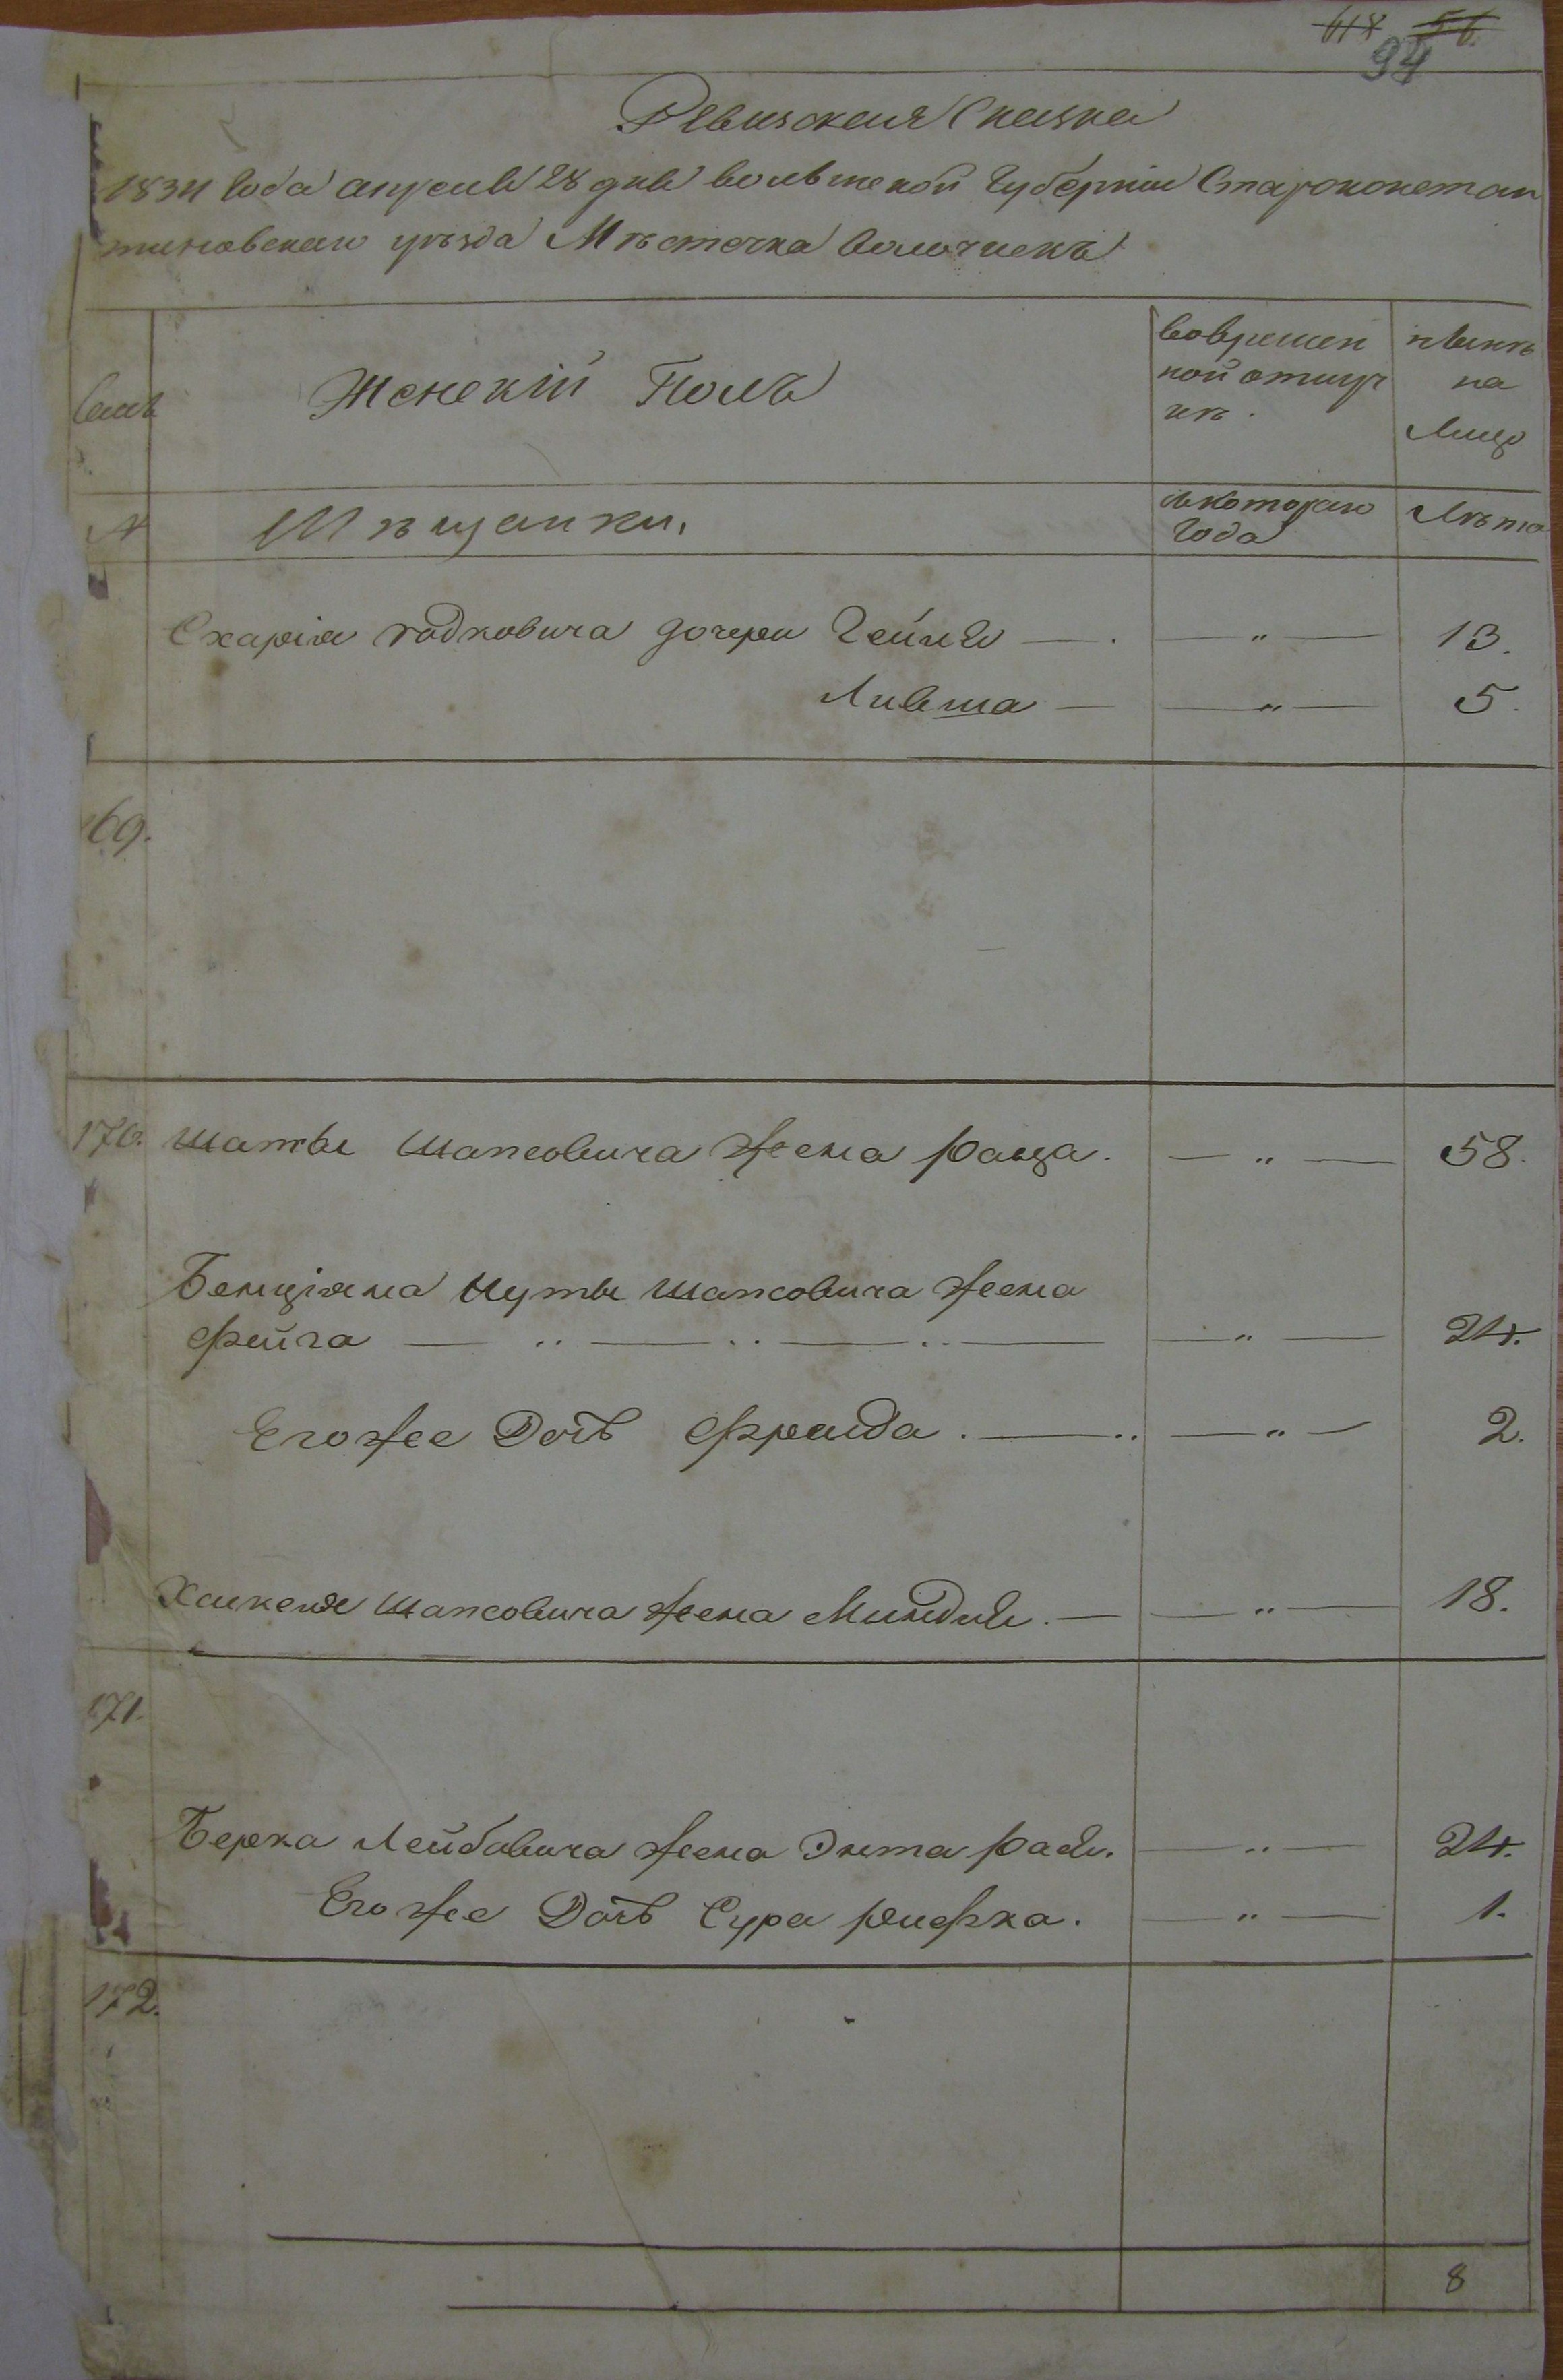 618 56.
94
Ревизская Сказка
1834 Года апреля 28 дня волынской Губернiи Староконстан
тиновскаго уезда Мѣстечка Волочискъ
Семь
Женскiй Полъ
вовремен
ной отлуч
кѣ.
нынѣ
на
Лицо
№
Мѣщанки.
съкотораго
Года
Лѣта
Схарiя юдковича дочери Гейня — . — " — 13.
Ливша — — " — 5.
69.
170. Шапсы Шапсовича жена раица. — " — 58.
Бенцiяна Нуты Шапсовича жена
Фейга — .. — .. — .. — — " — 24.
Егожее Дочь Фраида . — .. — " — 2.
Хаскеля Шапсовича жена Миндля. — — " — 18.
171.
Берка Лейбовича жена Энта рася. — .. — 24.
Егожее Дочь Сура рифка. — " — 1.
172.
8